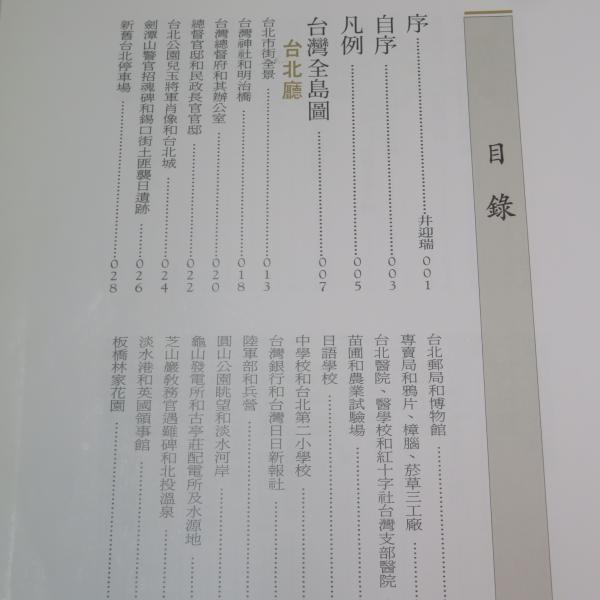 目錄
序 井迎瑞 001
自序 003
凡例 005
台灣全島圖 007
台北廳
台北市街全景 013
台灣神社和明治橋 018
台灣總督府和其辦公室 020
總督官邸和民政長官官邸 022
台北公園兒玉將軍肖像和台北城 024
劍潭山警官招魂碑和錫口街土匪襲日遺跡 026
新舊台北停車場 028
台北郵局和博物館
專賣局和鴉片、樟腦、菸草三工廠
台北醫院、醫學校和紅十字社台灣支部醫院
苗圃和農業試驗場
日語學校
中學校和台北第二小學校
台灣銀行和台灣日日新報社
陸軍部和兵營
圓山公園眺望和淡水河岸
龜山發電所和古亭莊配電所及水源地
芝山巖教務官遇難碑和北投溫泉
淡水港和英國領事館
板橋林家花園